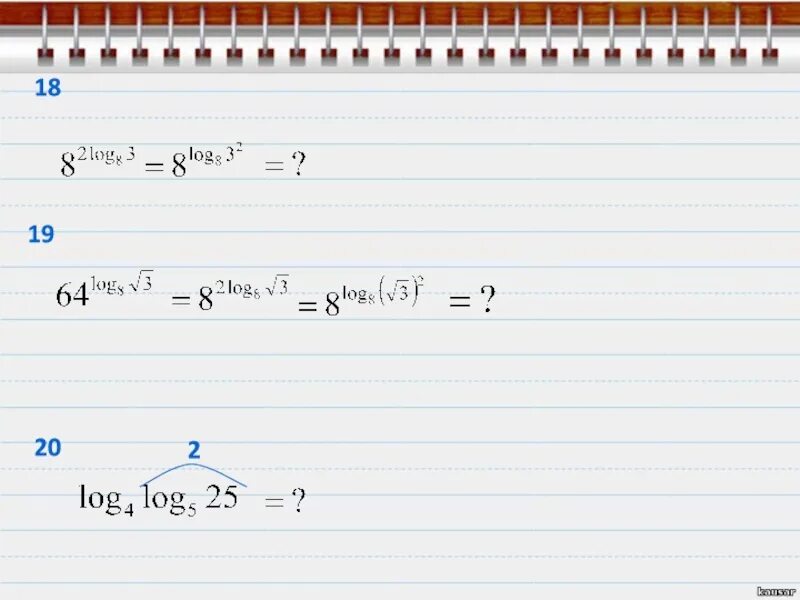 18
8^{2log_8 3} = 8^{log_8 3^2} = ?
19
64^{log_8 √3} = 8^{2log_8 √3} = 8^{log_8 (√3)^2} = ?
20
2
log_4 log_5 25 = ?
kausar